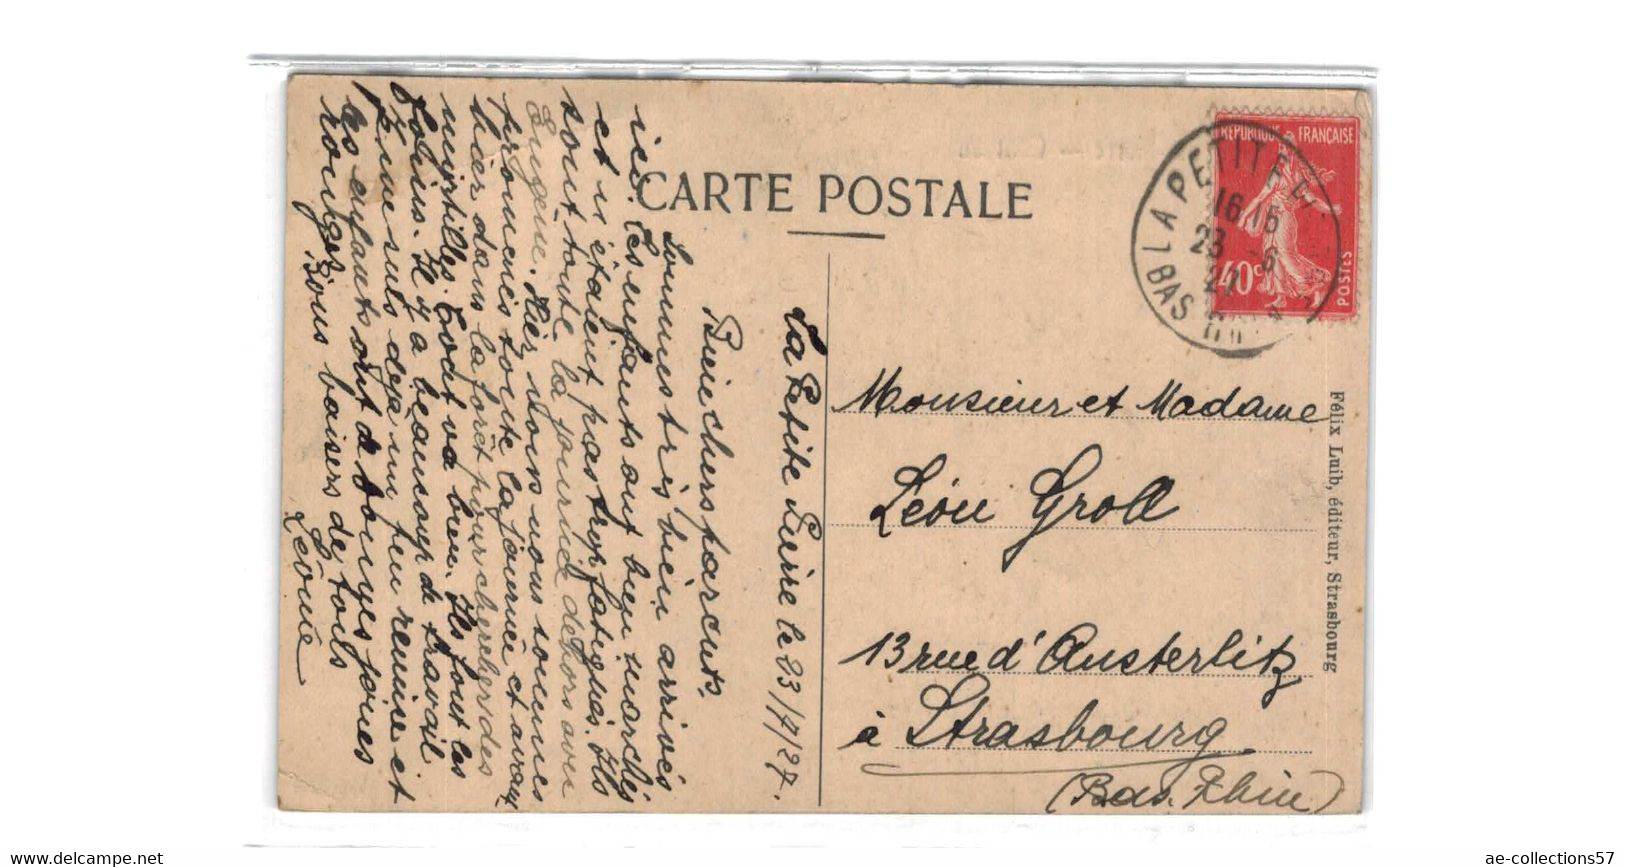 CARTE POSTALE
RÉPUBLIQUE FRANÇAISE
40c
POSTES
LA PETITE P
16 15
23 -6
27
BAS RHIN
La Petite Pierre le 23/7/27.
Bien chers parents,
Sommes très bien arrivés
ici. Les enfants ont bien marché
et n'étaient pas trop fatigués. Ils
sont toute la journée dehors avec
Eugène. Hier nous nous sommes
promenés toute la journée et avant
hier dans la forêt pour chercher des
myrtilles. Tout va bien. Ils font les
foins. Il y a beaucoup de travail
Je me suis déjà un peu remise et
les enfants ont de bonnes joues
rouges.
Bons baisers de tous
Léonie
Monsieur et Madame
Léon Groll
13 rue d'Austerlitz
à Strasbourg
(Bas. Rhin)
Félix Luib, éditeur, Strasbourg
www.delcampe.net
ae-collections57